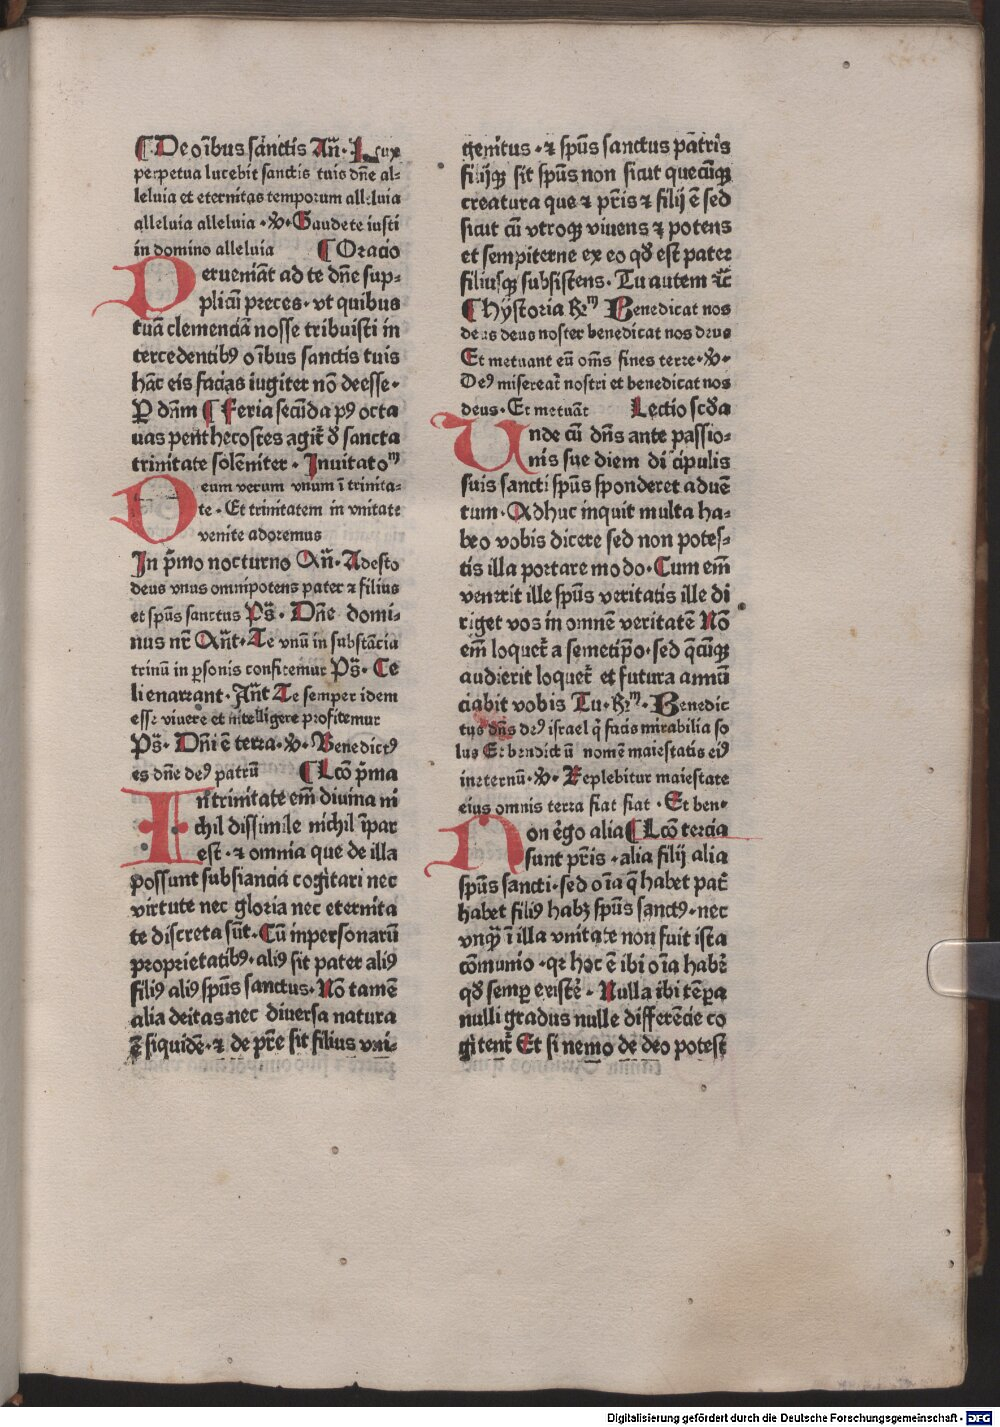 ¶ De oı̄bus sanctis Añ· Lux
perpetua lucebit sanctis tuis dñe al⸗
leluia et eternitas temporum alleluia
alleluia alleluia · ℣· Gaudete iusti
in domino alleluia ¶ Oracio
Perueniāt ad te dñe sup⸗
plicū preces · vt quibus
tuā clemenciā nosse tribuisti in
tercedentibꝰ oı̄bus sanctis tuis
hāc eis facias iugiter nō deesse·
P̲ dn̄m ¶ Feria secūda pꝰ octa
uas penthecostes agit̄ d̄ sancta
trinitate solēniter · Inuitatoᵐ
Deum verum vnum ı̄ trinita⸗
te · Et trinitatem in vnitate
venite adoremus
In p̄mo nocturno Añ· Adesto
deus vnus omnipotens pater ⁊ filius
et sp̄us sanctus Ps̄· Dn̄e domi⸗
nus nr̄ Añt· Te vnū in substācia
trinū in ꝑsonis confitemur Ps̄· Ce
li enarrant · Añt Te semper idem
esse viuere et intelligere profitemur
Ps̄· Dn̄i ē terra·℣· Benedictꝰ
es dn̄e deꝰ patrū ¶ Lc̄o p̄ma
In trinitate em̄ diuina ni
chil dissimile nichil ı̄par
est · ⁊ omnia que de illa
possunt subsiancia cogitari nec
virtute nec gloria nec eternita
te discreta sūt· Cū inpersonarū
proprietatibꝰ· aliꝰ sit pater aliꝰ
filiꝰ aliꝰ sp̄us sanctus· Nō tamē
alia deitas nec diuersa natura
ē siquidē· ⁊ de pr̄e sit filius vni⸗
genitus · ⁊ sp̄us sanctus patris
filijqꝫ sit sp̄us non sicut quecūqꝫ
creatura que ⁊ pr̄is ⁊ filij ē sed
sicut cū vtroqꝫ viuens ⁊ potens
et sempiterne ex eo qd̄ est pater
filiusqꝫ subsistens· Tu autem ⁊c̄
¶ hystoria Rᵐ Benedicat nos
deus deus noster benedicat nos deus
Et metuant eū om̄s fines terre·℣·
Deꝰ misereat̄ nostri et benedicat nos
deus· Et metuāt Lectio scd̄a
Unde cū dn̄s ante passio⸗
nis sue diem discipulis
suis sancti sp̄us sponderet aduē
tum· Adhuc inquit multa ha⸗
beo vobis dicere sed non potes⸗
tis illa portare modo· Cum em̄
venerit ille sp̄us veritatis ille di
riget vos in omnē veritatē Nō
em̄ loquet̄ a semetip̄o· sed q̄cūqꝫ
audierit loquet̄ et futura annū
ciabit vobis Tu· Rᵐ· Benedic
tus dn̄s deꝰ israel q̄ facis mirabilia so
lus Et bn̄dictū nomē maiestatis eiꝰ
ineternū·℣· Replebitur maiestate
eius omnis terra fiat fiat · Et ben⸗
Non ēgo alia ¶ Lc̄o tercia
sunt pr̄is · alia filij alia
sp̄us sancti· sed oı̄a q̄ habet pat̄
habet filiꝰ habꝫ sp̄us sanctꝰ· nec
vnqꝫ̄ ı̄ illa vnitate non fuit ista
cōmunio · qr hoc ē ibi oı̄a habr̄
qd̄ semꝑ existē· Nulla ibi tēꝑa
nulli gradus nulle differēcie co
gitent̄ Et si nemo de deo potest
Digitalisierung gefördert durch die Deutsche Forschungsgemeinschaft - DFG